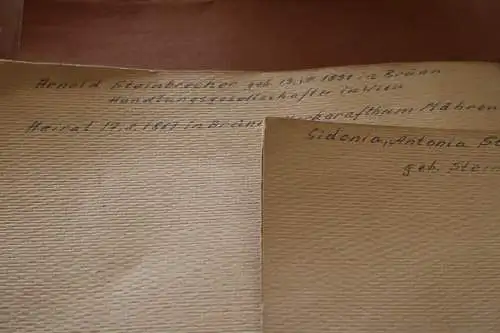 Arnold Steinbrecher geb. 19. VII. 1831 in Brünn
Handlungsgesellschafter in Wien
Heirat 19.5.1861 in Brünn Markgrafthum Mähren
Sidonia, Antonia
geb.